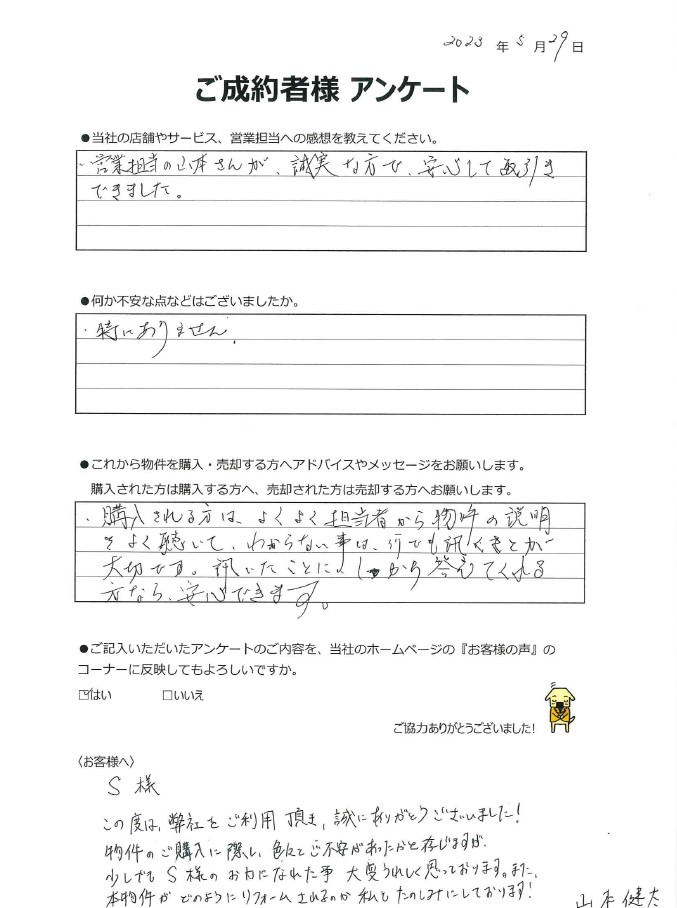 2023 年 5 月 29 日
ご成約者様 アンケート
●当社の店舗やサービス、営業担当への感想を教えてください。
・営業担当の山本さんが、誠実な方で、安心して取引き
できました。
●何か不安な点などはございましたか。
・特にありません。
●これから物件を購入・売却する方へアドバイスやメッセージをお願いします。
購入された方は購入する方へ、売却された方は売却する方へお願いします。
・購入される方は、よくよく担当者から物件の説明
をよく聴いて、わからない事は、何でも訊くことが
大切です。訊いたことにしっかり答えてくれる
方なら、安心できます。
●ご記入いただいたアンケートのご内容を、当社のホームページの『お客様の声』の
コーナーに反映してもよろしいですか。
☑はい □いいえ
ご協力ありがとうございました!
〈お客様へ〉
S 様
この度は、弊社をご利用頂き、誠にありがとうございました!
物件のご購入に際し、色々とご不安があったかと存じますが、
少しでも S 様のお力になれた事 大変うれしく思っております。また、
本物件がどのようにリフォームされるのか私もたのしみにしております!
山本 健太